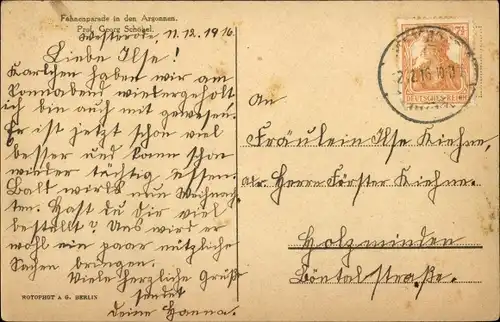 Fahnenparade in den Argonnen.
Prof. Georg Schöbel.
11.12.1916
Liebe Ilse!
Karlchen haben wir am
Sonnabend wiedergeholt
bin auch mit gewesen.
Er ist jetzt schon viel
besser und kann schon
wieder tüchtig essen.
Bald wirds nun Weihnach-
ten. Hast du dir viel
bestellt? Uns wird er
wohl ein paar nützliche
Sachen bringen.
Viele herzliche Grüße
sendet
Deine Hanna.
ROTOPHOT A G. BERLIN
7½
DEUTSCHES REICH
An
Fräulein Ilse Kiehne,
Herrn Förster Kiehne.
Holzminden
Böntalstraße.